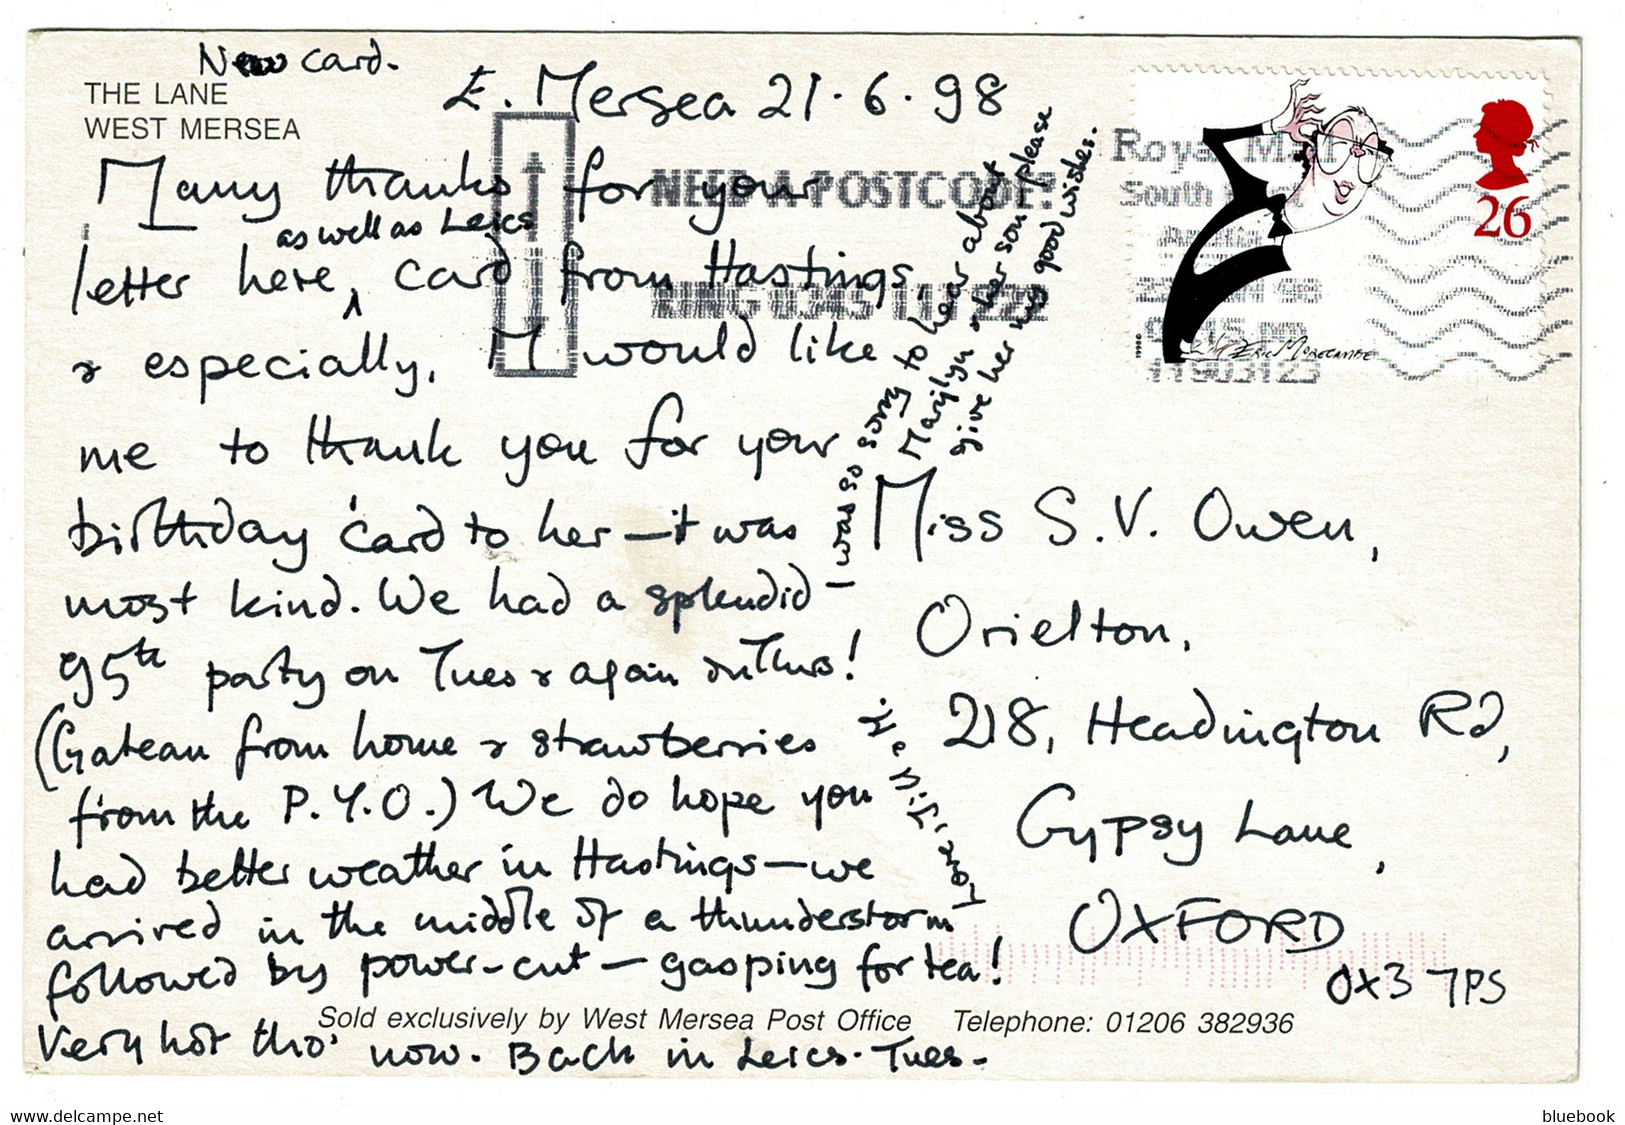 New card.
THE LANE
WEST MERSEA
E. Mersea 21.6.98
Many thanks for your
as well as Leics
letter here, card from Hastings,
& especially, M would like
me to thank you for your
birthday card to her — it was
most kind. We had a splendid
95th party on Tues & again on Thurs!
(Gateau from home & strawberries
from the P.Y.O.) We do hope you
had better weather in Hastings — we
arrived in the middle of a thunderstorm
followed by power-cut — gasping for tea!
Very hot tho' now. Back in Leics. Tues.
I was so sorry to hear about
Marilyn & her son please
give her my good wishes.
Miss S.V. Owen,
Orielton,
218, Headington Rd,
Gypsy Lane,
OXFORD
OX3 7PS
NEED A POSTCODE?
RING 0345 111 222
Royal Mail
South
Anglia
98
pm
26
1998
Eric Morecambe
Sold exclusively by West Mersea Post Office Telephone: 01206 382936
www.delcampe.net
bluebook